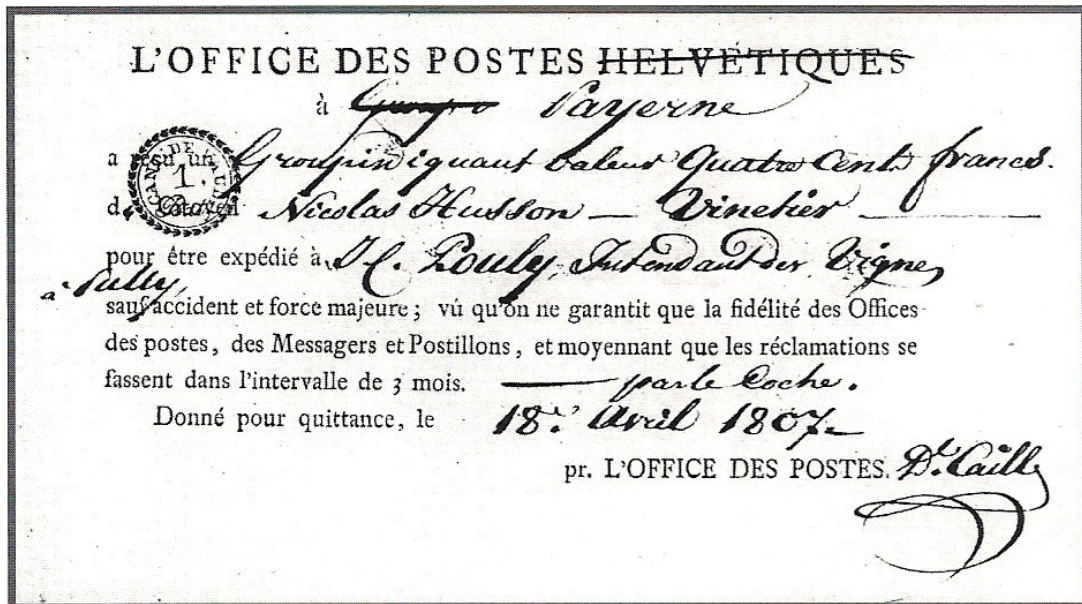 L'OFFICE DES POSTES HELVÉTIQUES
à Payerne
a reçu un Groupin iquant valeur Quatre Cent francs.
CANT. DE VAUD
1.
du Citoyen Nicolas Husson — Vinetier
pour être expédié à J C. Pouly, Intendant der Vignes
a Pully,
sauf accident et force majeure ; vú qu'on ne garantit que la fidélité des Offices
des postes, des Messagers et Postillons, et moyennant que les réclamations se
fassent dans l'intervalle de 3 mois. — par le Coche.
Donné pour quittance, le 18.e Avril 1807.
pr. L'OFFICE DES POSTES. Dl. Cailly